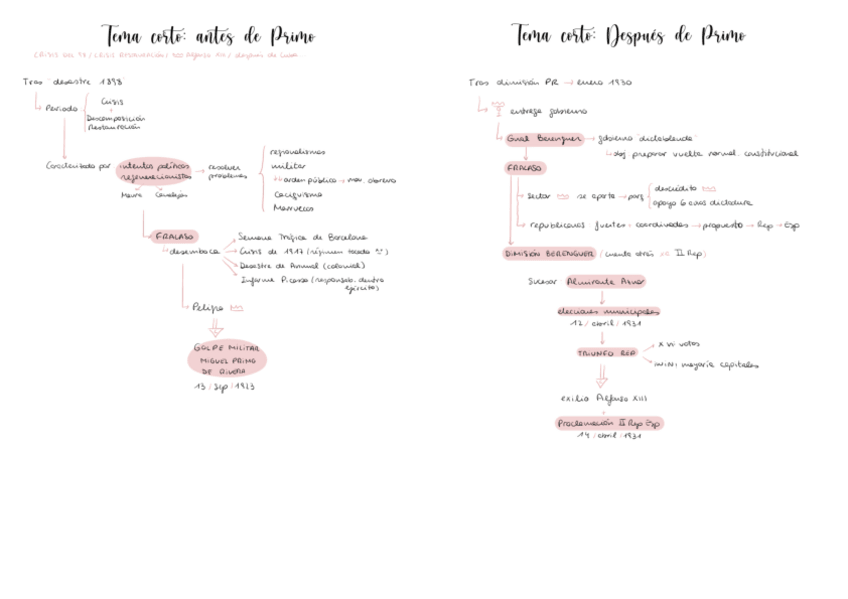 Tema corto: antes de Primo
CRISIS DEL 98 / CRISIS RESTAURACIÓN / Alfonso XIII / después de Cuba
Tras "desastre" 1898
Periodo
Crisis
Descomposición
Restauración
Caracterizado por
intentos políticos
regeneracionistas
Maura
Canalejas
resolver
problemas
regionalismos
militar
orden público → mov. obrero
Caciquismo
Marruecos
FRACASO
desemboca
Semana Trágica de Barcelona
Crisis de 1917 (régimen tocado)
Desastre de Annual (colonial)
Informe Picasso (responsab. dentro
ejército)
Peligro
GOLPE MILITAR
MIGUEL PRIMO
DE RIVERA
13 / sep / 1923
Tema corto: Después de Primo
Tras dimisión PR → enero 1930
entrega gobierno
Gnral Berenguer → gobierno "dictablanda"
obj preparar vuelta normal. constitucional
FRACASO
Sector se aparta → porq
descrédito
apoyo 6 años dictadura
republicanos fuertes: coordinados → propuesta → Rep → Esp
DIMISIÓN BERENGUER (cuenta atrás II Rep)
Sucesor Almirante Aznar
elecciones municipales
12 / abril / 1931
TRIUNFO REP
x nº votos
mayoría capitales
exilio Alfonso XIII
Proclamación II Rep Esp
14 / abril / 1931